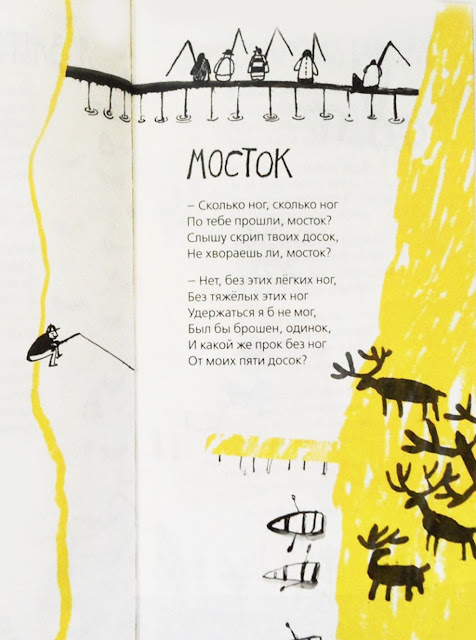 МОСТОК
– Сколько ног, сколько ног
По тебе прошли, мосток?
Слышу скрип твоих досок,
Не хвораешь ли, мосток?
– Нет, без этих лёгких ног,
Без тяжёлых этих ног
Удержаться я б не мог,
Был бы брошен, одинок,
И какой же прок без ног
От моих пяти досок?